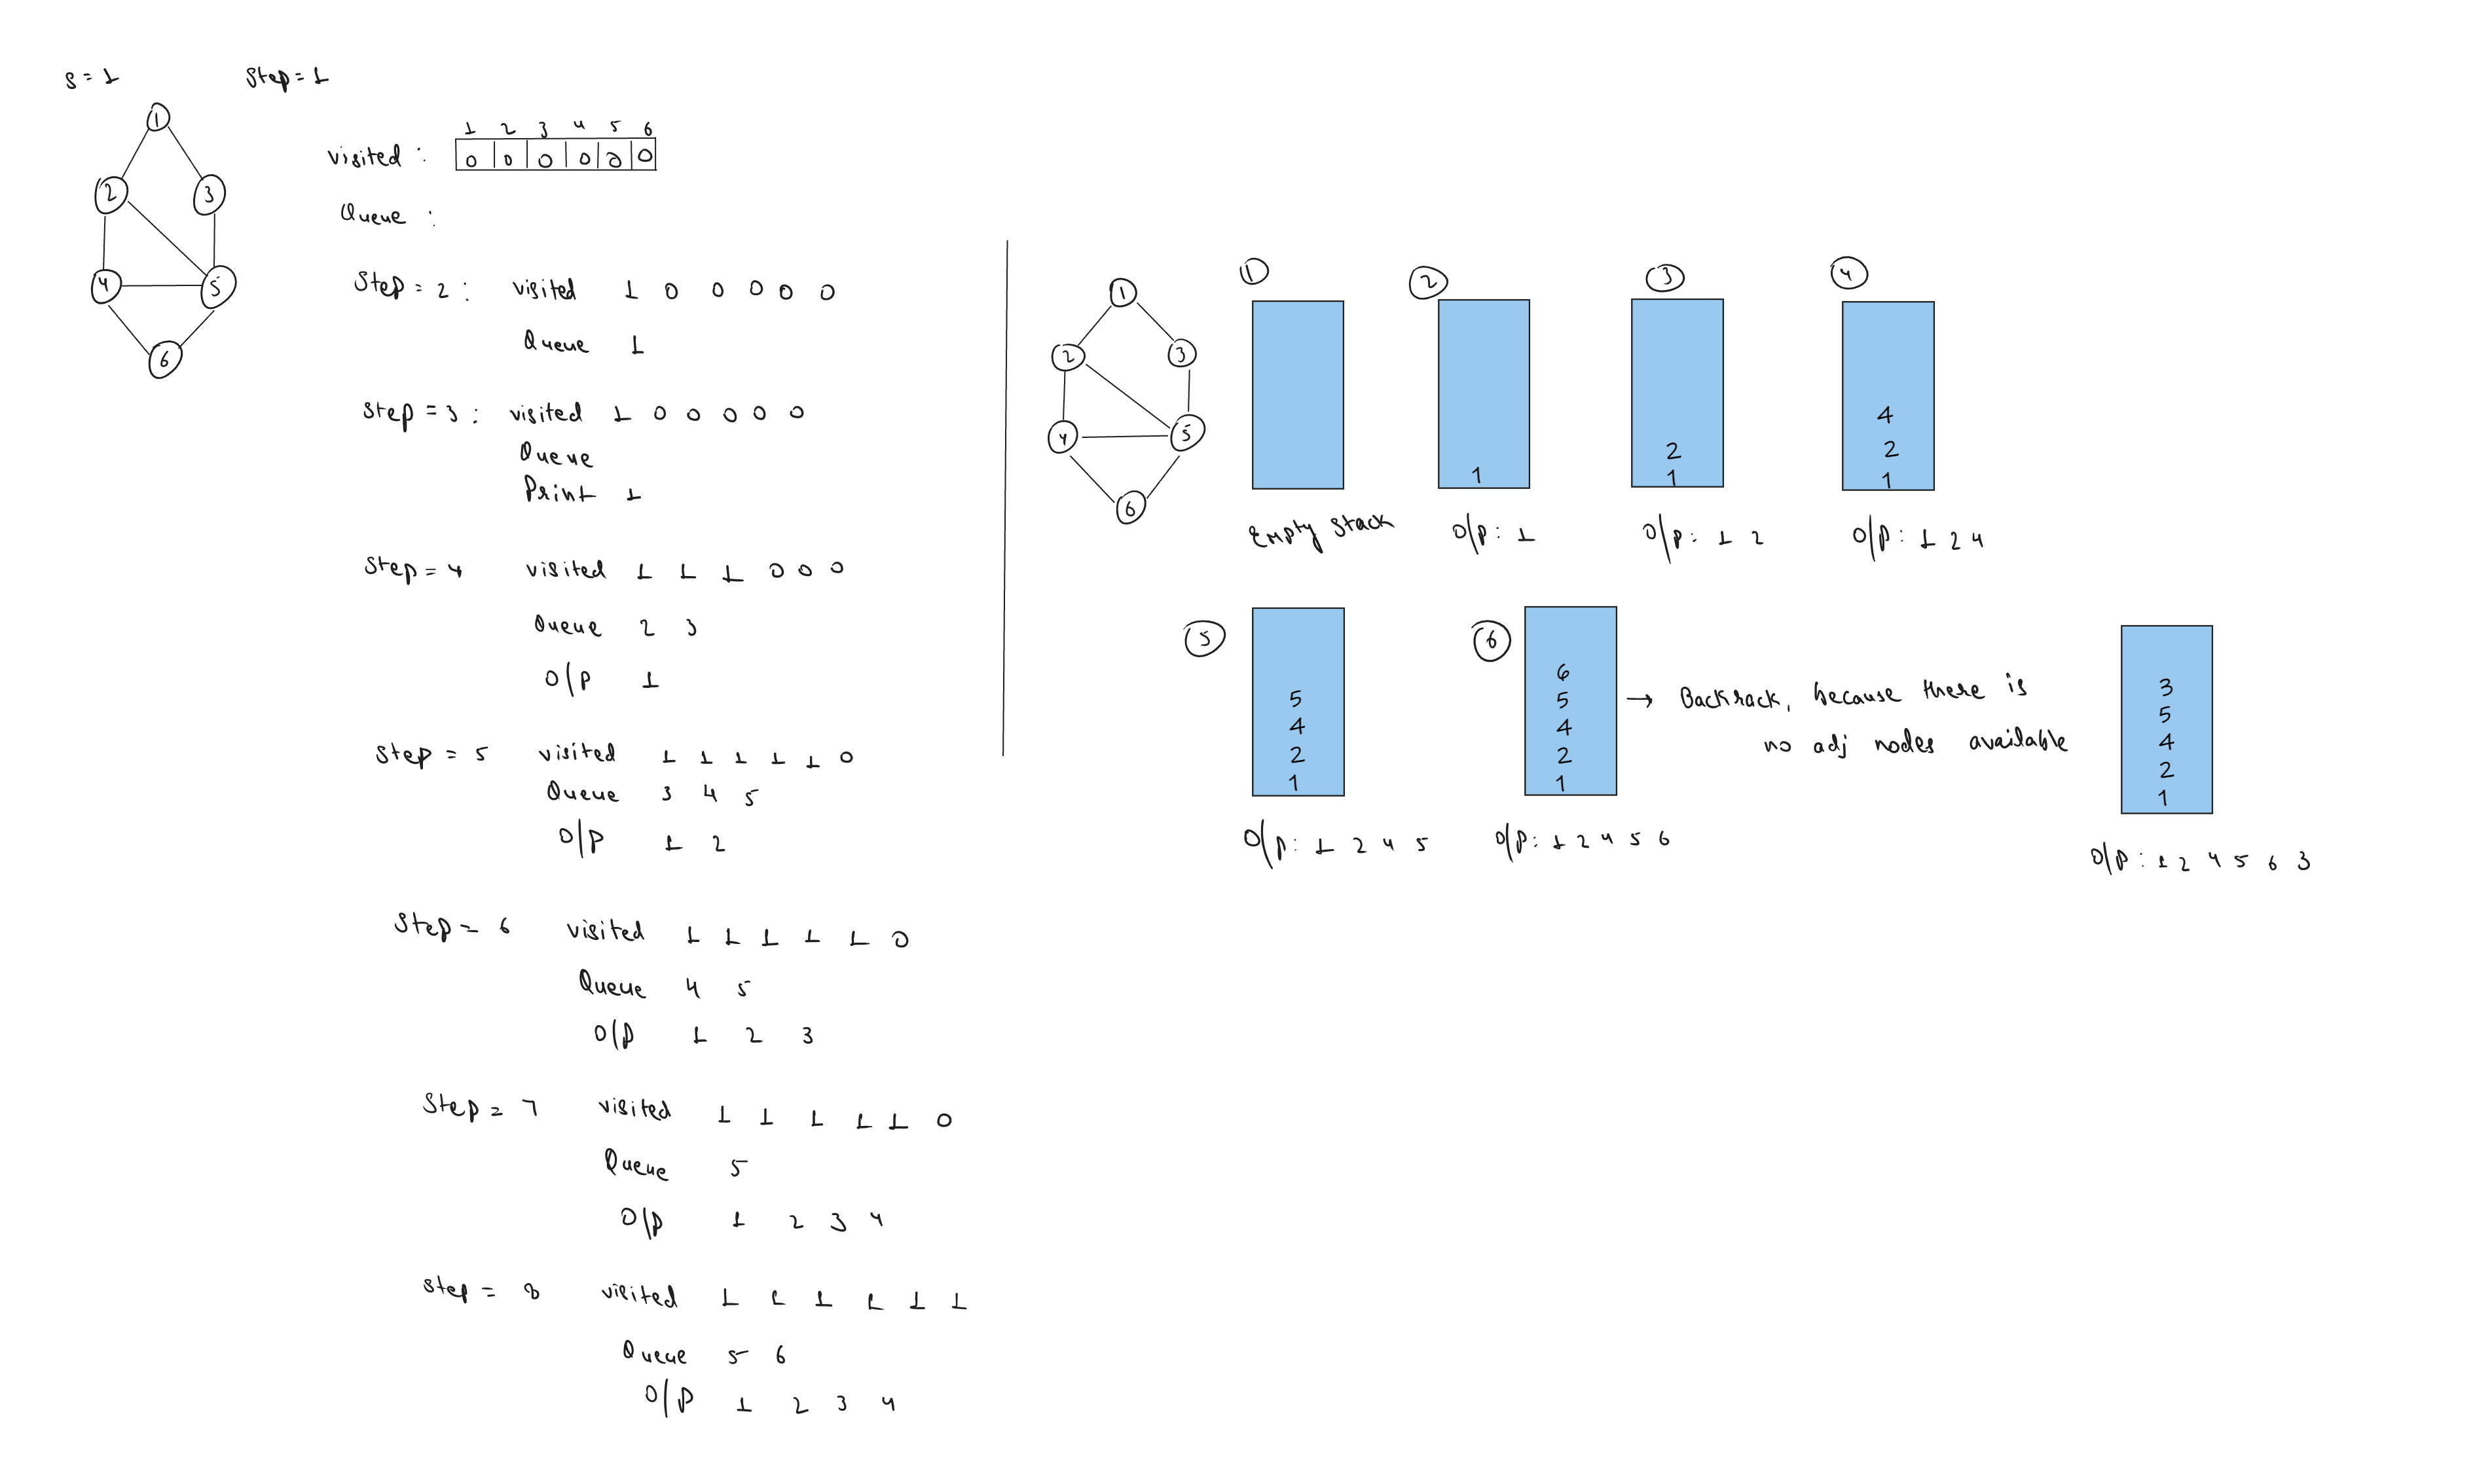 s = 1
Step = 1
1
2
3
4
5
6
1 2 3 4 5 6
visited : 0 0 0 0 0 0
Queue :
Step = 2 : visited 1 0 0 0 0 0
Queue 1
Step = 3 : visited 1 0 0 0 0 0
Queue
Print 1
Step = 4 visited 1 1 1 0 0 0
Queue 2 3
O/P 1
Step = 5 visited 1 1 1 1 1 0
Queue 3 4 5
O/P 1 2
Step = 6 visited 1 1 1 1 1 0
Queue 4 5
O/P 1 2 3
Step = 7 visited 1 1 1 1 1 0
Queue 5
O/P 1 2 3 4
Step = 8 visited 1 1 1 1 1 1
Queue 5 6
O/P 1 2 3 4
1
2
3
4
5
6
1
Empty Stack
2
1
O/P : 1
3
2
1
O/P : 1 2
4
4
2
1
O/P : 1 2 4
5
5
4
2
1
O/P : 1 2 4 5
6
6
5
4
2
1
O/P : 1 2 4 5 6
→ Backtrack, because there is
no adj nodes available
3
5
4
2
1
O/P : 1 2 4 5 6 3